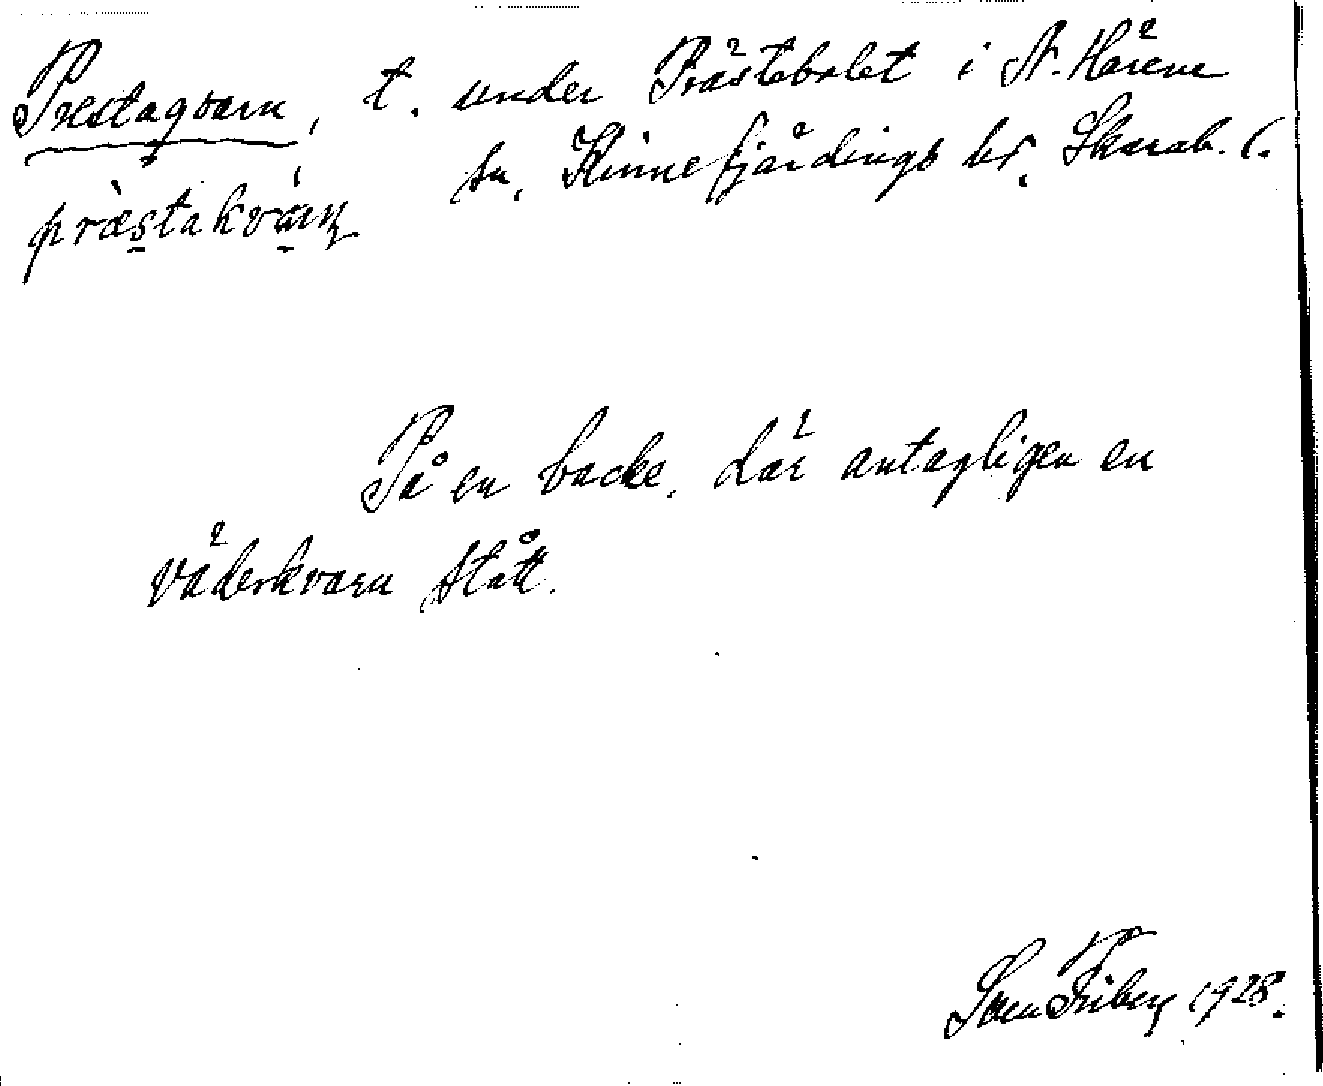 Prestaqvarn, t. under Prästebolet i N. Härene
sn, Kinnefjärdings hr. Skarab. l.
præ̀stakvàrn
På en backe, där antagligen en
väderkvarn stått.
Sven Friberg 1928.